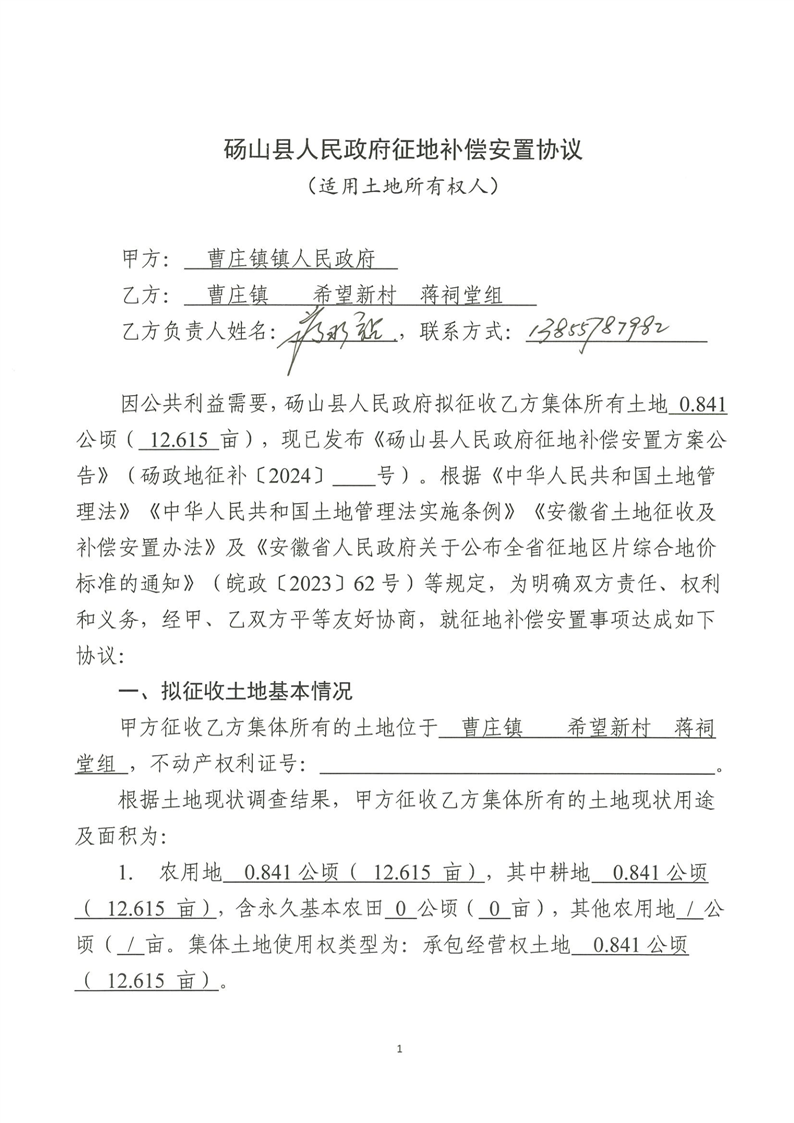 砀山县人民政府征地补偿安置协议
（适用土地所有权人）
甲方： 曹庄镇镇人民政府
乙方： 曹庄镇 希望新村 蒋祠堂组
乙方负责人姓名： ，联系方式：13855787982
因公共利益需要，砀山县人民政府拟征收乙方集体所有土地 0.841
公顷（ 12.615 亩），现已发布《砀山县人民政府征地补偿安置方案公
告》（砀政地征补〔2024〕____号）。根据《中华人民共和国土地管
理法》《中华人民共和国土地管理法实施条例》《安徽省土地征收及
补偿安置办法》及《安徽省人民政府关于公布全省征地区片综合地价
标准的通知》（皖政〔2023〕62 号）等规定，为明确双方责任、权利
和义务，经甲、乙双方平等友好协商，就征地补偿安置事项达成如下
协议：
一、拟征收土地基本情况
甲方征收乙方集体所有的土地位于 曹庄镇 希望新村 蒋祠
堂组 ，不动产权利证号：____。
根据土地现状调查结果，甲方征收乙方集体所有的土地现状用途
及面积为：
1. 农用地 0.841 公顷（ 12.615 亩），其中耕地 0.841 公顷
（ 12.615 亩），含永久基本农田 0 公顷（ 0 亩），其他农用地 / 公
顷（ / 亩。集体土地使用权类型为：承包经营权土地 0.841 公顷
（ 12.615 亩）。
1